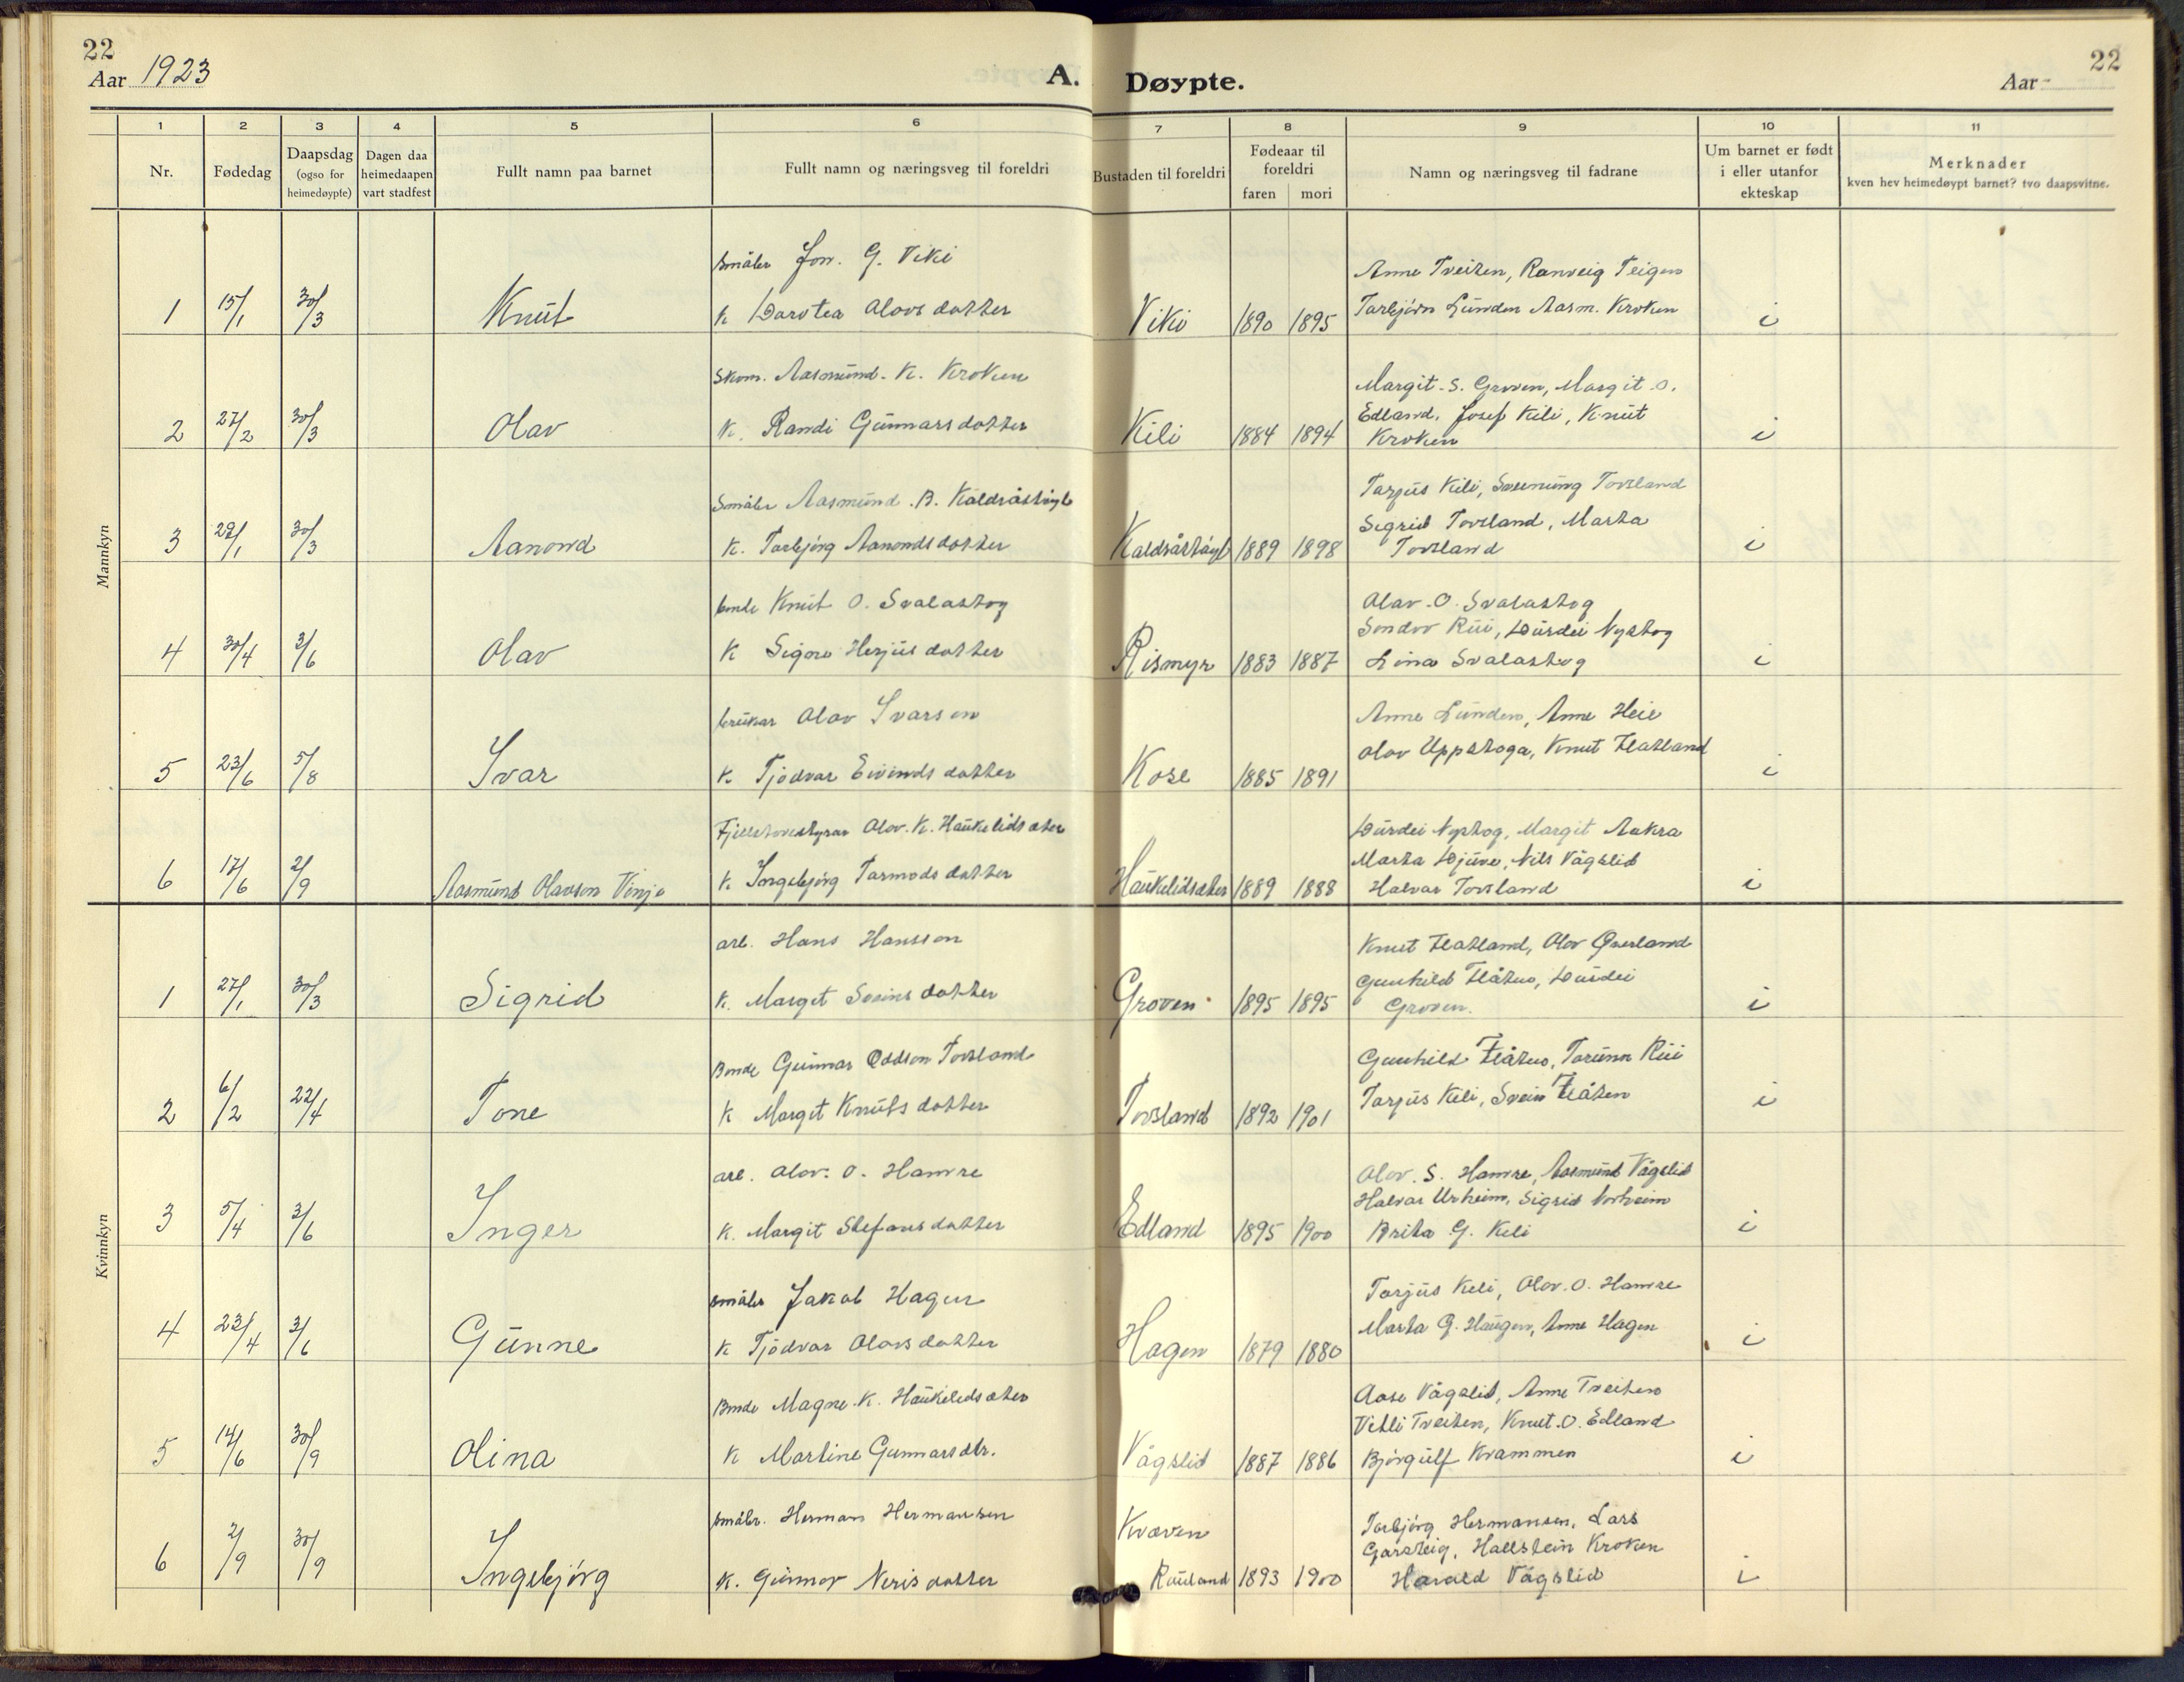 22
Aar 1923
A. Døypte.
Aar
22
1 2 3 4 5 6 7 8 9 10 11
Nr.
Fødedag
Daapsdag
(ogso for
heimedøypte)
Dagen daa
heimedaapen
vart stadfest
Fullt namn paa barnet
Fullt namn og næringsveg til foreldri
Bustaden til foreldri
Fødeaar til
foreldri
faren mori
Namn og næringsveg til fadrane
Um barnet er født
i eller utanfor
ekteskap
Merknader
kven hev heimedøypt barnet? tvo daapsvitne.
Mannkyn
Småbr Jon. G. Viki
Anne Tveiten, Ranveig Teigen
1 15/1 30/3 Knut K Dorotea Olavsdotter Viki 1890 1895 Torbjörn Lunden Aasm. Kroken i
Skom. Aasmund. K. Kroken
Margit. S. Groven, Margit. O.
Edland, Josef Kili, Knut
2 27/2 30/3 Olav K. Randi Gunnarsdotter Kili 1884 1894 Kroken i
Småbr Aasmund. B. Kaldråstøyl
Tarjus Kili, Tovsland
Sigrid Tovsland, Marta
3 30/3 Aanond K. Torbjörg Aanondsdotter Kaldråstøyl 1889 1898 Tovsland i
bonde Knut O. Svalastog
Olav. O. Svalastog
Sondov Rui, Durdei Nystog
4 30/4 3/6 Olav K Signe Herjusdotter Rismyr 1883 1887 Lina Svalastog i
brukar Olav Ivarson
Anne Lunden, Anne Heie
Olav Uppstoga, Knut Flatland
5 23/6 5/8 Ivar K. Tjodvar Eivindsdotter Kose 1885 1891 i
Fjellstovestyrar Olav. K. Haukelidsæter
Durdei Nystog, Margit Aakra
Marta Djuve, Nils Vågslid
6 17/6 2/9 Aasmund Olavson Vinje K. Ingebjörg Tarmodsdotter Haukelidsæter 1889 1888 Halvar Tovsland i
Kvinnkyn
arb. Hans Hansson
Knut Flatland, Olav Øverland
Gunhild Flåten, Durdei
1 27/1 30/3 Sigrid K. Margit Sveinsdotter Groven 1895 1895 Groven. i
Bonde Gunnar Oddson Tovsland
Gunhild Flåten, Torunn Rui
2 6/2 22/4 Tone K Margit Knutsdotter Tovsland 1892 1901 Tarjus Kili, Svein Flåten i
arb. Olav. O. Hamre
Olav. S. Hamre, Aasmund Vågslid
Halvar Urheim, Sigrid Norheim
3 5/4 3/6 Inger K. Margit Stefansdotter Edland 1895 1900 Brita G. Kili i
småbr Jakob Hagen
Tarjus Kili, Olav. O. Hamre
4 23/4 3/6 Gunne K Tjodvar Olavsdotter Hagen 1879 1880 Marta G. Haugen, Anne Hagen i
Bonde Magne. K. Haukelidsæter
Aase Vågslid, Anne Tveiten
Vetli Tveiten, Knut. O. Edland
5 14/6 30/9 Olina K Martine Gunnarsdtr. Vågslid 1887 1886 Bjørgulf Kvammen i
småbr. Herman Hermansen
Kvæven
Torbjörg Hermansen, Lars
Garsteig, Hallstein Kroken
6 2/9 30/9 Ingebjörg K. Gunnor Nerisdotter Rauland 1893 1900 Harald Vågslid i